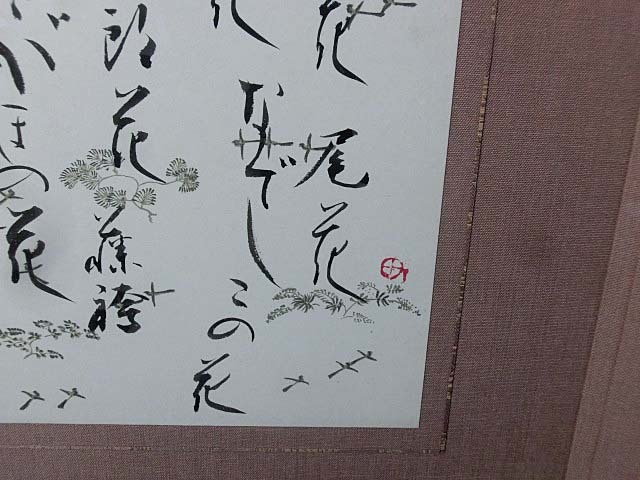 花 尾花
花 なでしこの花
郎花 藤袴
がほの花